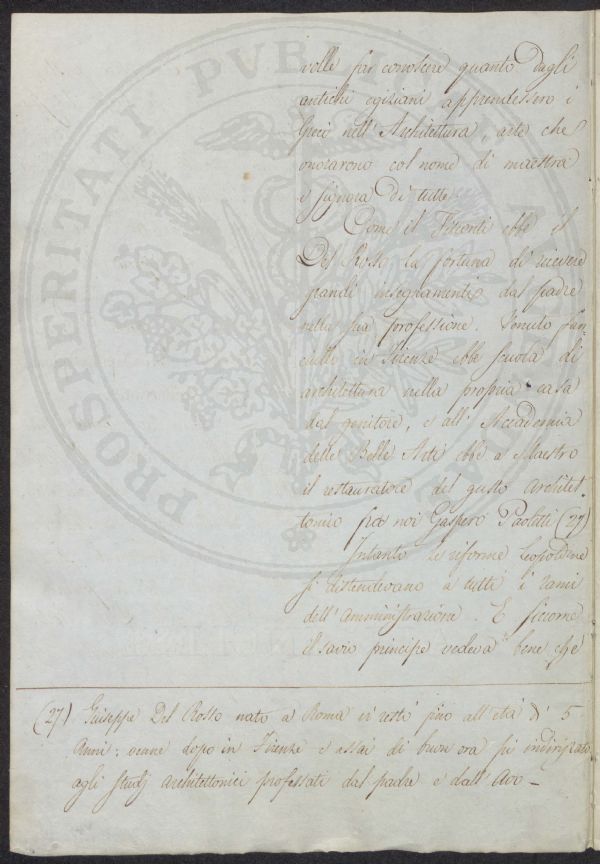 volle far conoscere quanto dagli
antichi egiziani apprendessero i
Greci nell'Architettura, arte che
onorarono col nome di maestra
e signora di tutte
Come il Visconti ebbe il
Del Rosso la fortuna di ricevere
grandi insegnamenti dal padre
nella sua professione. Venuto fan-
ciullo in Firenze ebbe scuola di
architettura nella propria casa
dal genitore, e all'Accademia
delle Belle Arti ebbe a Maestro
il restauratore del gusto architet
tonico fra noi Gaspero Paoletti (27)
Intanto le riforme Leopoldine
si distendevano a tutti i rami
dell'amministrazione. E siccome
il savio principe vedeva bene che
(27) Giuseppe Del Rosso nato a Roma vi restò fino all'età di 5
Anni: venne dopo in Firenze e assai di buon ora fu indirizzato
agli Studj architettonici professati dal padre e dall'Avo –
PROSPERITATI PVBLI